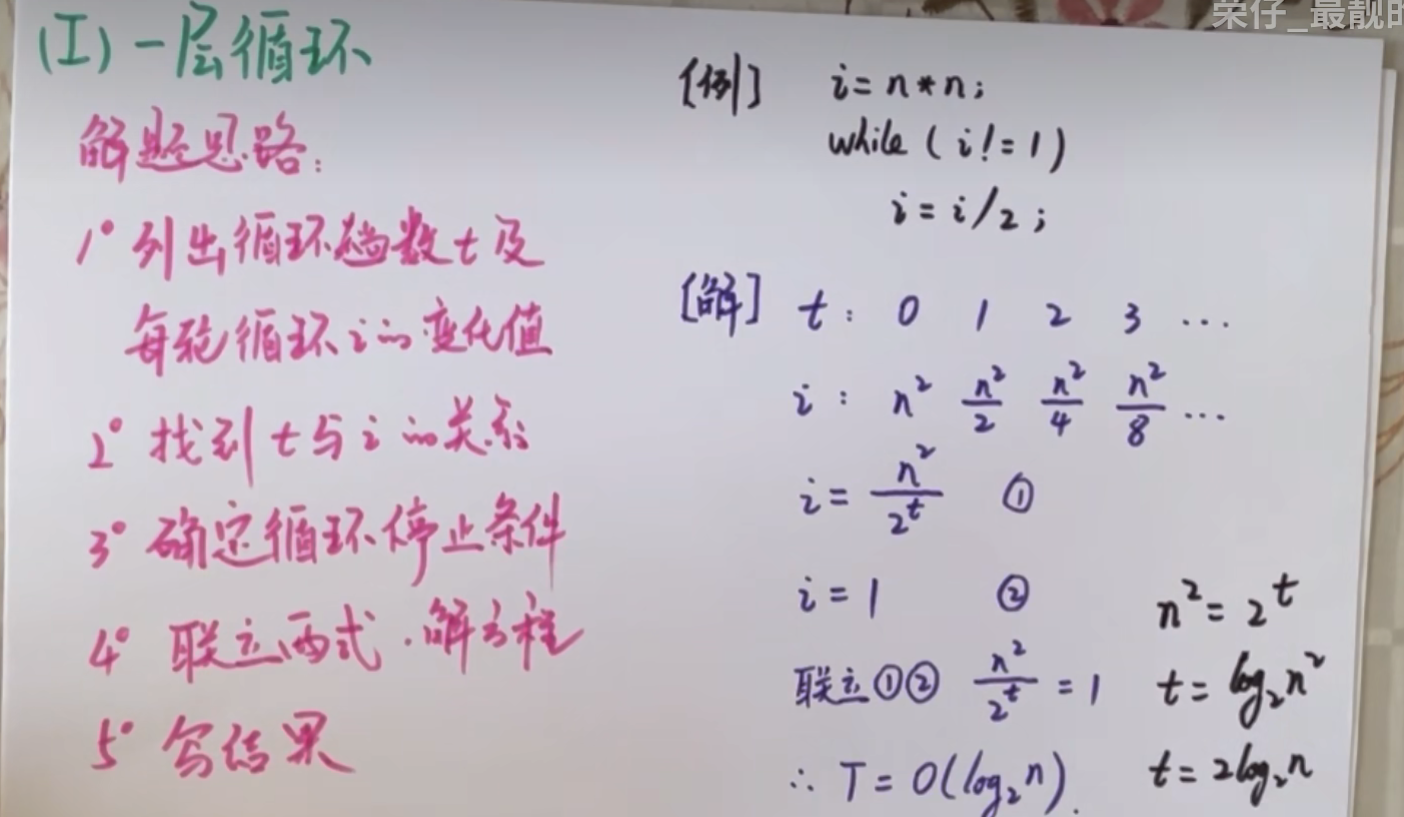 荣仔_最靓的
(I) 一层循环
解题思路：
1° 列出循环趟数t及
每轮循环i的变化值
2° 找到t与i的关系
3° 确定循环停止条件
4° 联立两式．解方程
5° 写结果
[例] i = n * n;
while ( i != 1 )
i = i / 2 ;
[解] t : 0 1 2 3 ...
i : n² n²/2 n²/4 n²/8 ...
i = n²/2^t ①
i = 1 ②
联立①② n²/2^t = 1
∴ T = O(log₂n).
n² = 2^t
t = log₂n²
t = 2log₂n